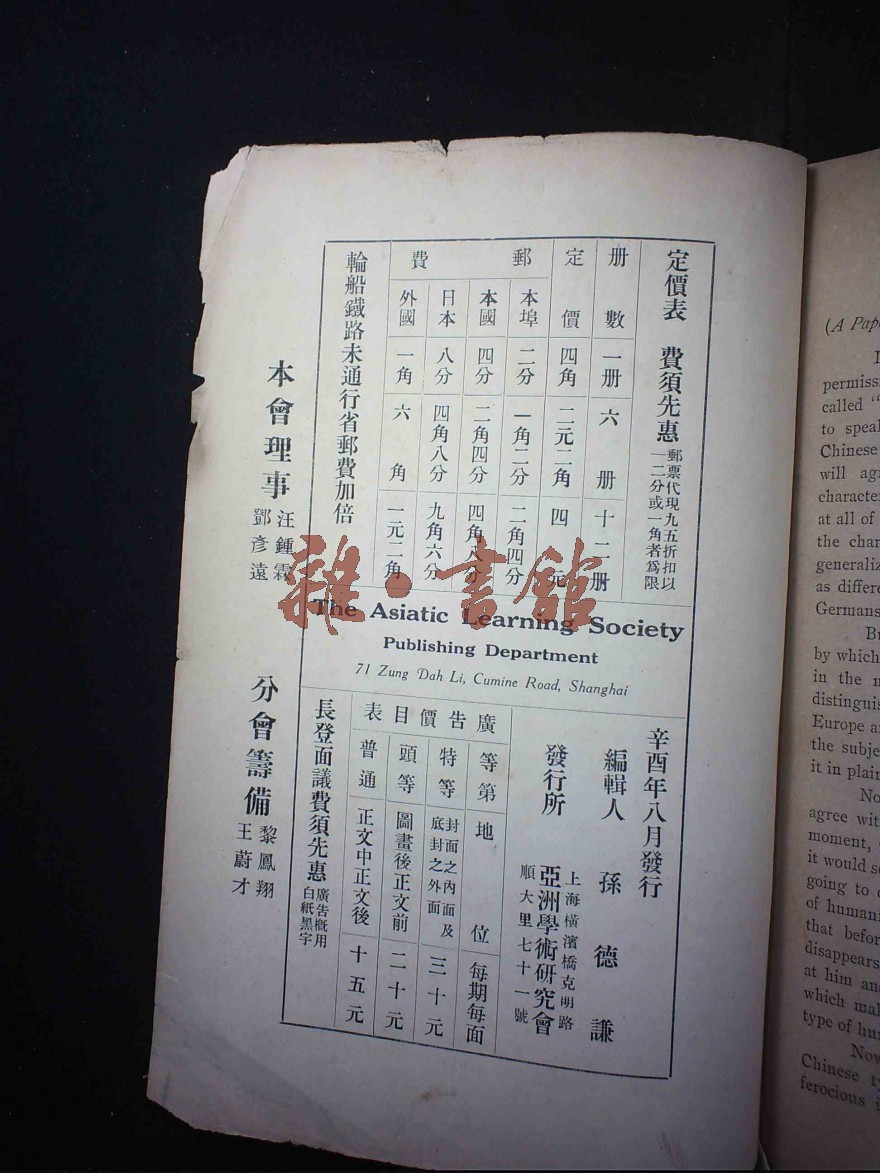 定價表 費須先惠 郵票代現九五折扣以一二分或一角者爲限
册數 一册 六册 十二册
定價 四角 二元二角 四元
郵費
本埠 二分 一角二分 二角四分
本國 四分 二角四分 四角八分
日本 八分 四角八分 九角六分
外國 一角 六角 一元二角
輪船鐵路未通行省郵費加倍
The Asiatic Learning Society
Publishing Department
71 Zung Dah Li, Cumine Road, Shanghai
辛酉年八月發行
編輯人 孫德謙
發行所 亞洲學術研究會
上海橫濱橋克明路
順大里七十一號
廣告價目表
等第 地位 每期每面
特等 封面之內面及底封之外面 三十元
頭等 圖畫後正文前 二十元
普通 正文中正文後 十五元
長登面議費須先惠 廣告概用白紙黑字
本會理事 汪鍾霖 鄧彥遠
分會籌備 黎鳳翔 王蔚才
雜·書館
(A Pap
permiss
called "
to speal
Chinese
will agr
character
at all of
the char
generaliz
as differe
Germans
Bu
by which
in the n
distinguis
Europe a
the subje
it in plain
No
agree wit
moment,
it would se
going to
of humani
that befor
disappears
at him and
which mal
type of hu
Now
Chinese ty
ferocious i